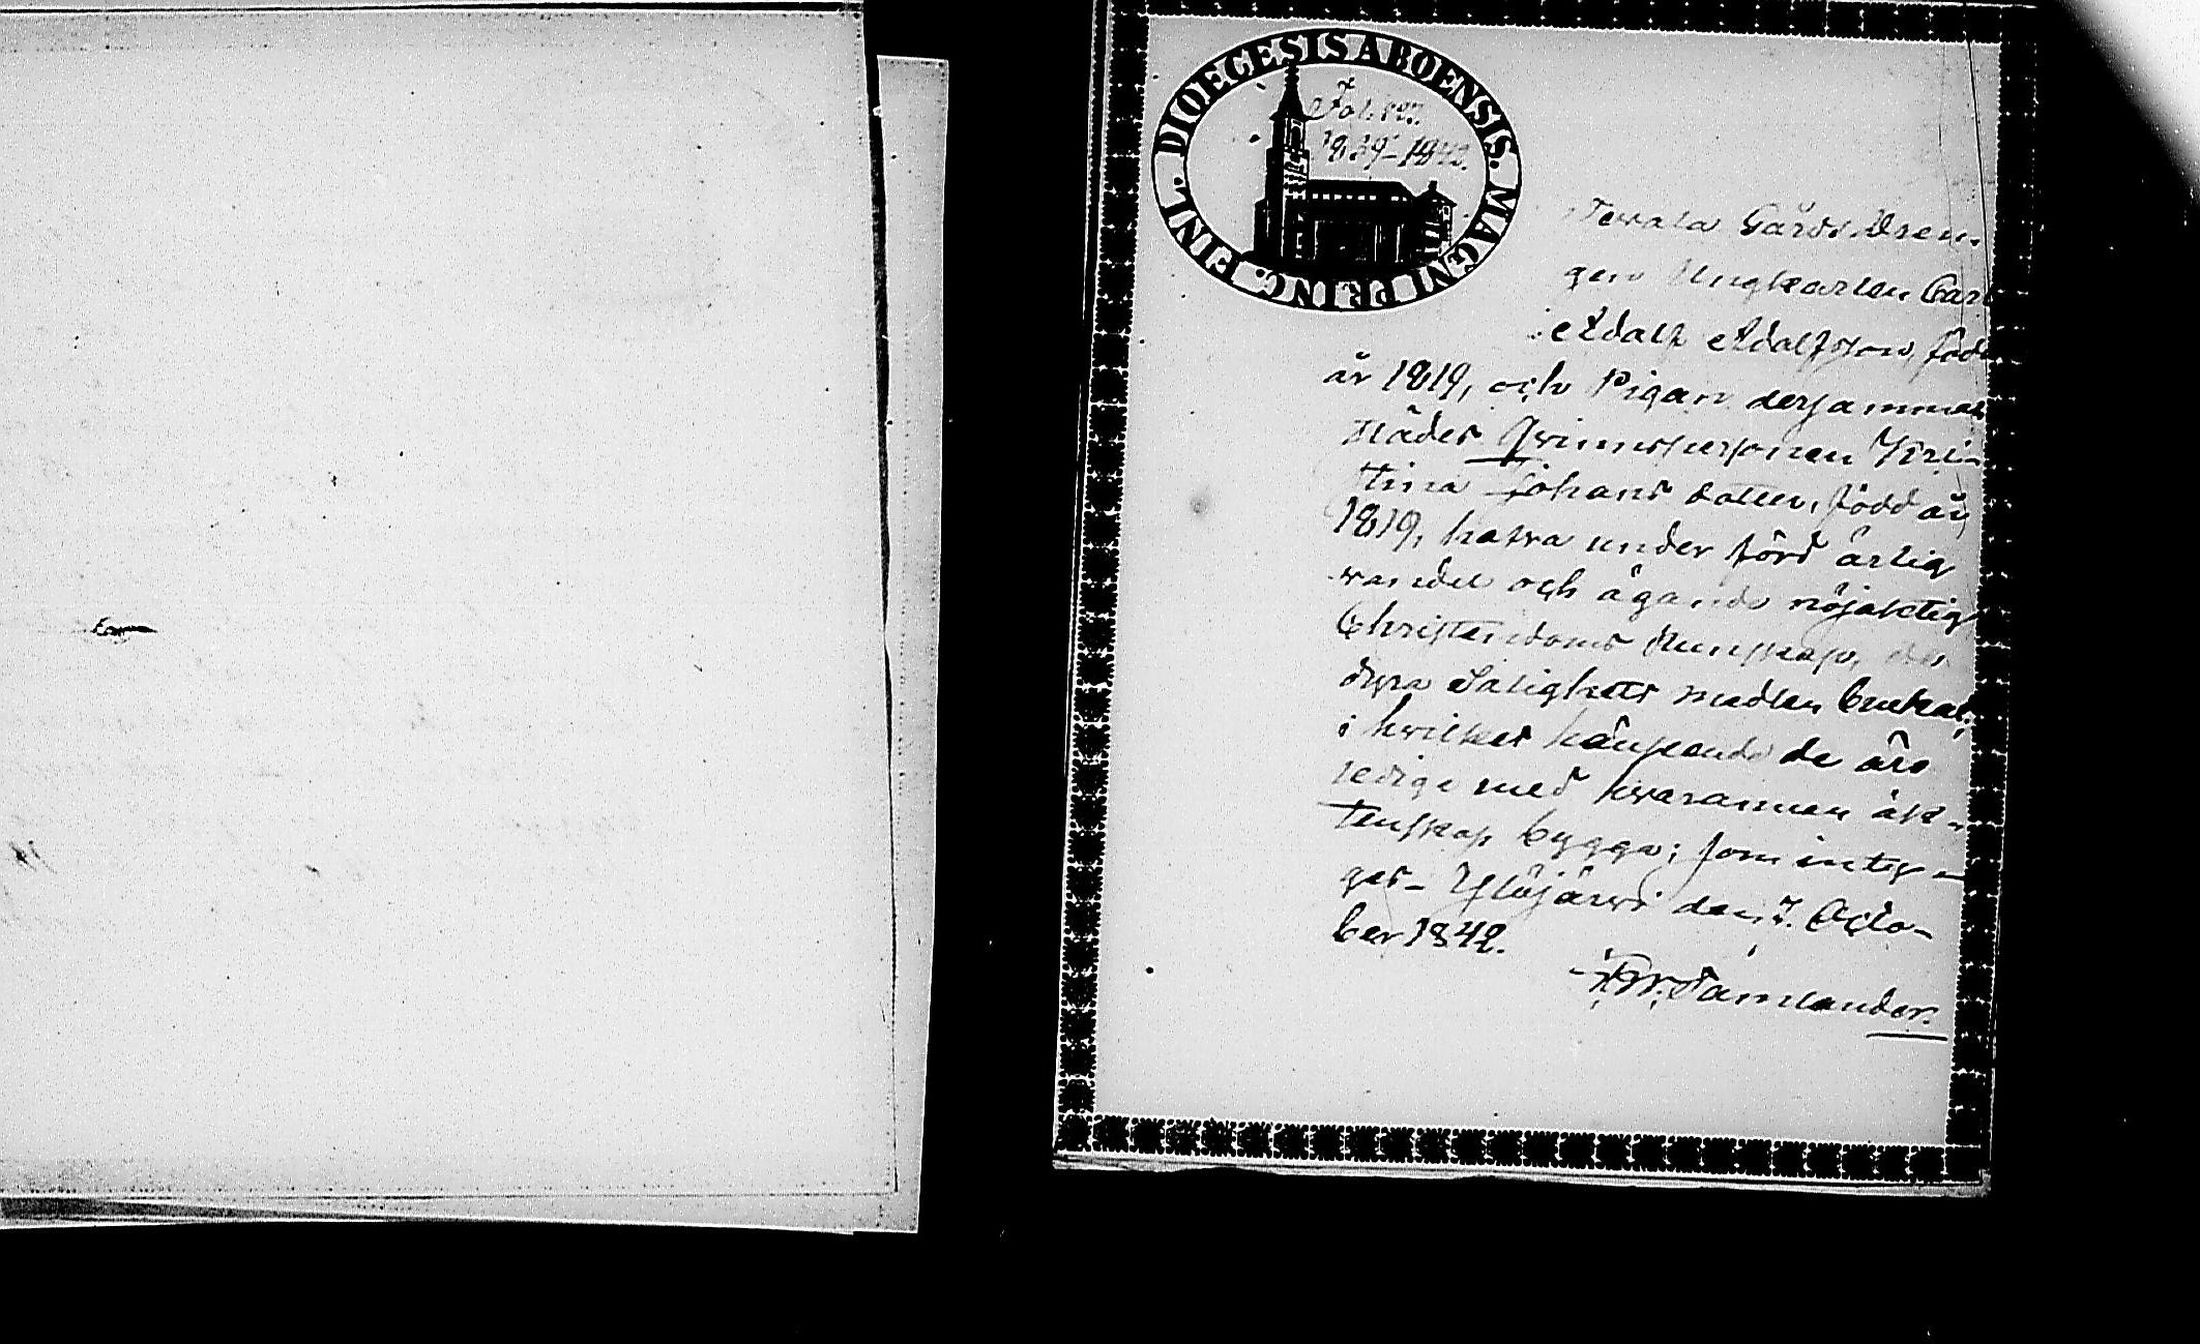 DIOECESIS ABOENSIS. MAGNI PRINC. FINL.
1839-1842.
Gårds Dren-
gen Ungkarlen Carl
Adolf Adolfsson, född
år 1819, och Pigan dersammas-
städes Qvinnspersonen Kris-
tina Johans dotter, född år
1819, hafva under förd ärlig
vandel och ägande nöjaktig
Christendoms Kunskap, de
dyra Salighets medlen brukat,
i hvilket hänseende de äro
ledige med hvarannan äk-
tenskap bygga; som intyg-
gas. Ylöjärvi den 7. Octo-
ber 1842.
F.W. Tamlander.